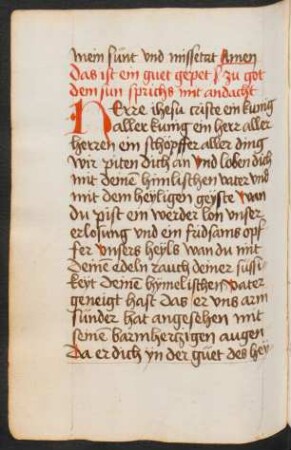 mein sünt vnd missetat Amen
Das ist ein guet gepet zu got
dem sun sprichs mit andacht
Herre ihesu criste ein kunig
aller kunig ein herr aller
herren ein schopffer aller ding
wir piten dich an vnd loben dich
mit deinem himlischen vater vnd
mit dem heyligen geyste wan
du pist ein werder lon vnser
erlosung vnd ein fridsams opf
fer vnsers heyls wan du mit
deinem edeln rauch deiner sussi
keyt deinen hymelischen vater
geneigt hast das er vns arm
sunder hat angesehen mit
seinen barmhertzigen augen
Da er dich yn der güet des hey